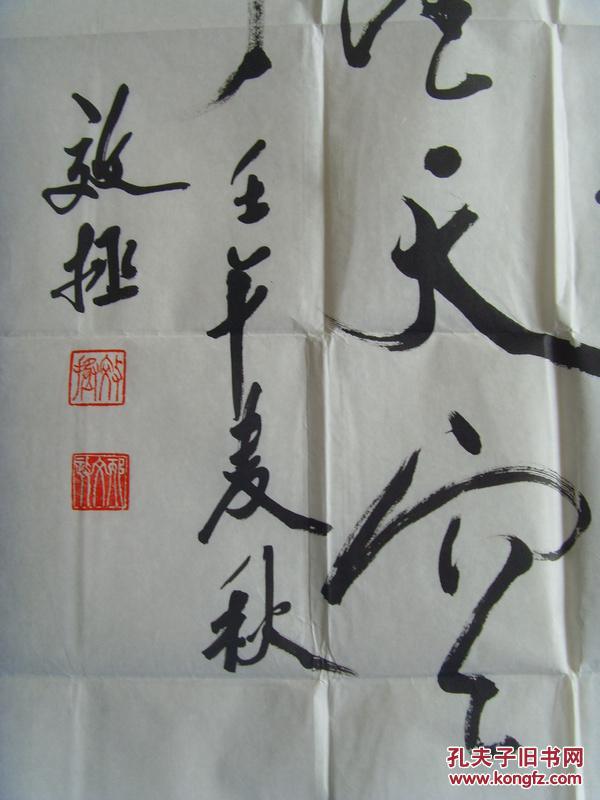 天空
壬午夏秋
效拯
孔夫子旧书网
www.kongfz.com